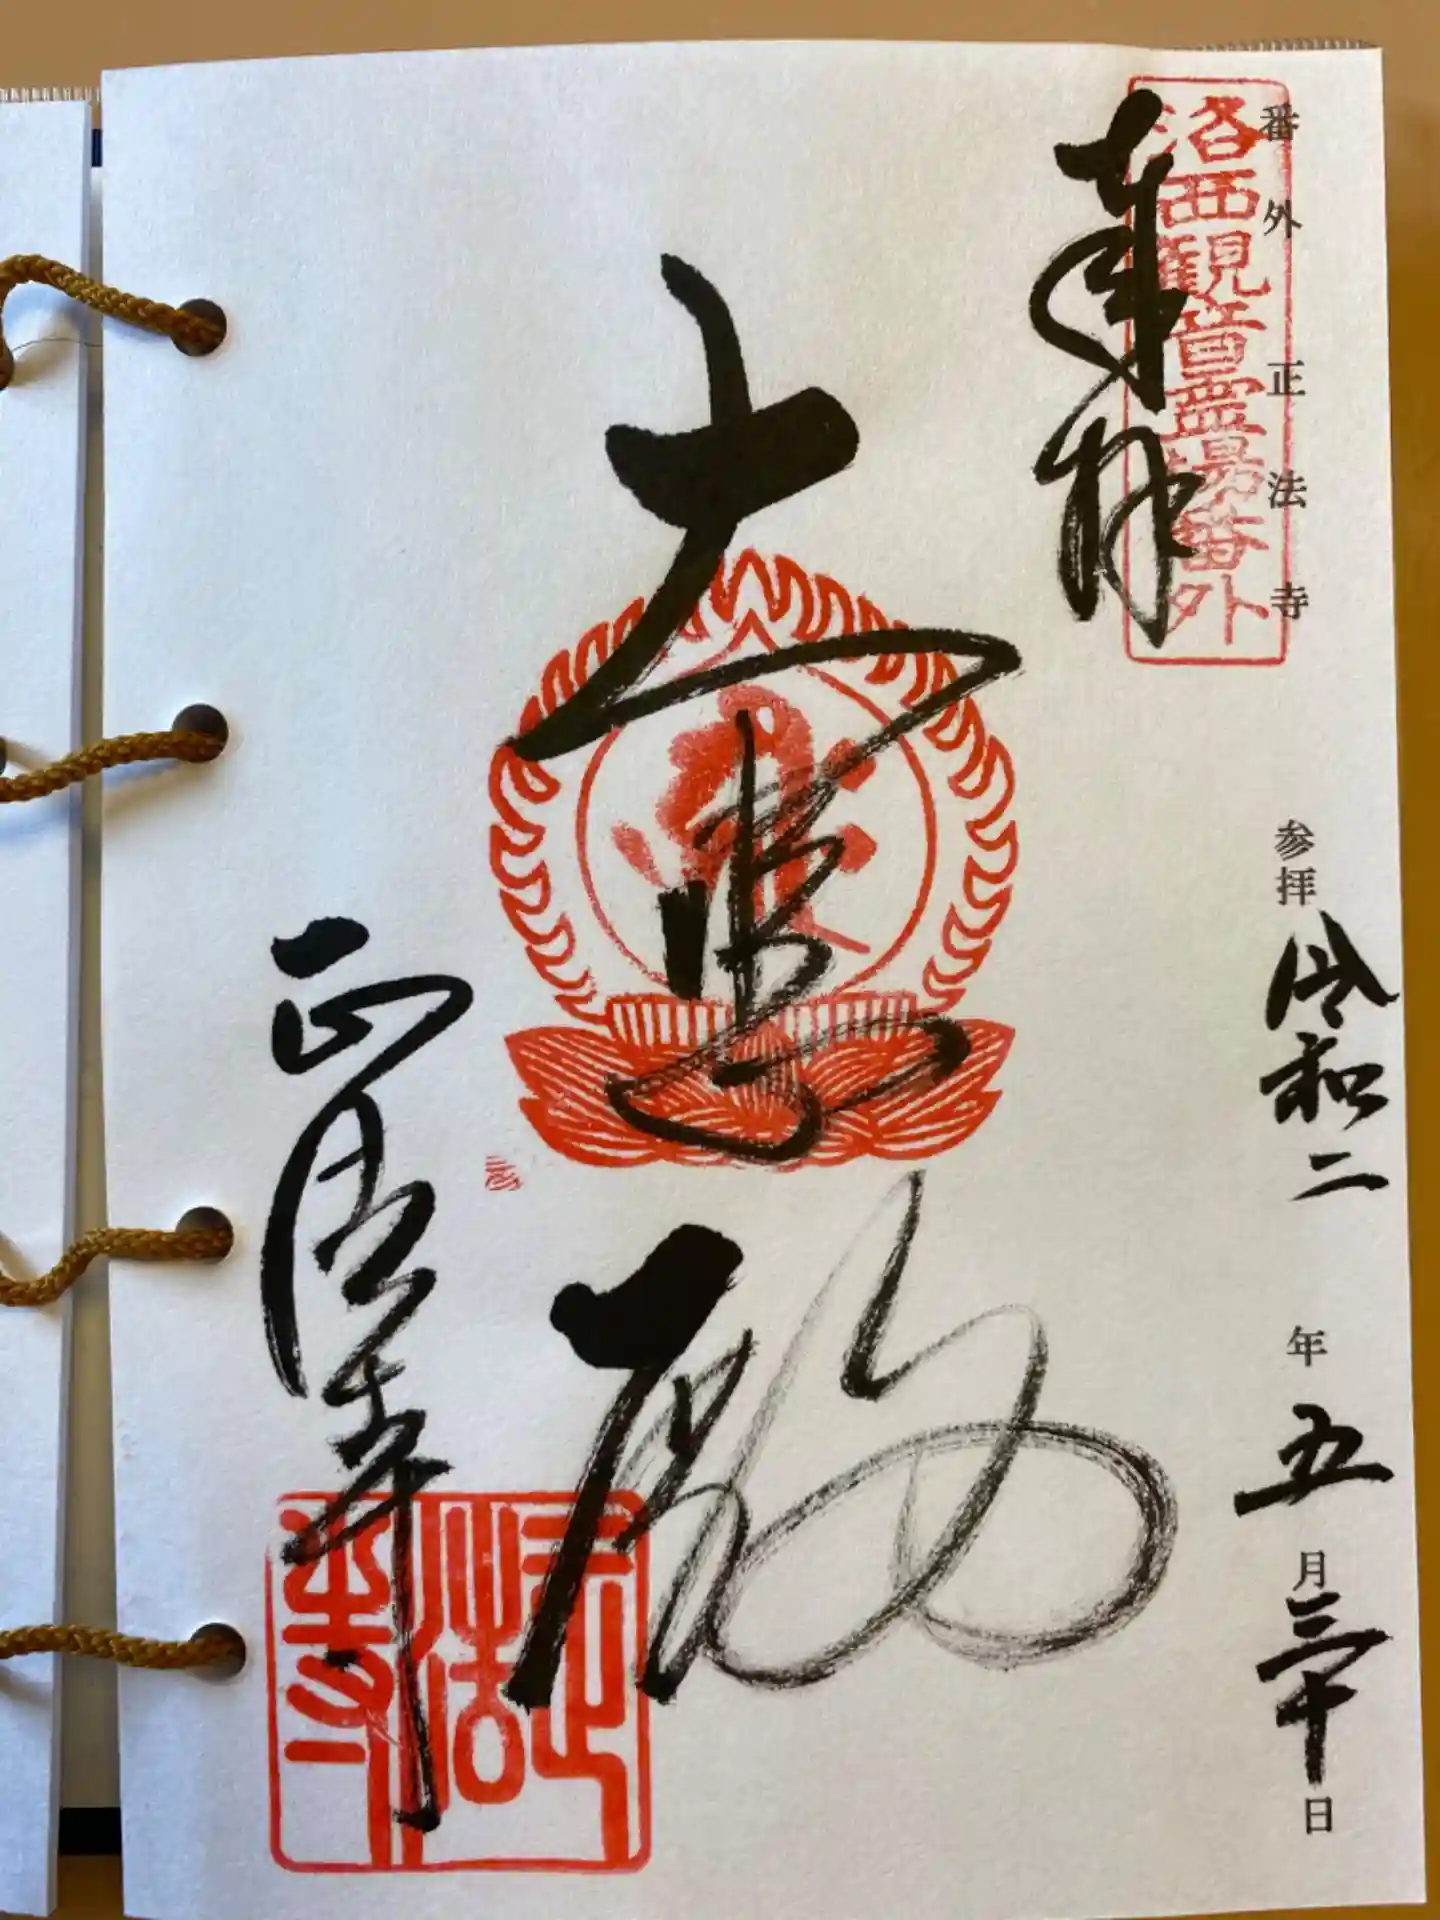 番外 正法寺
参拝 令和二年五月三十日
洛西観音霊場番外
奉拝
大悲殿
正法寺
正法寺